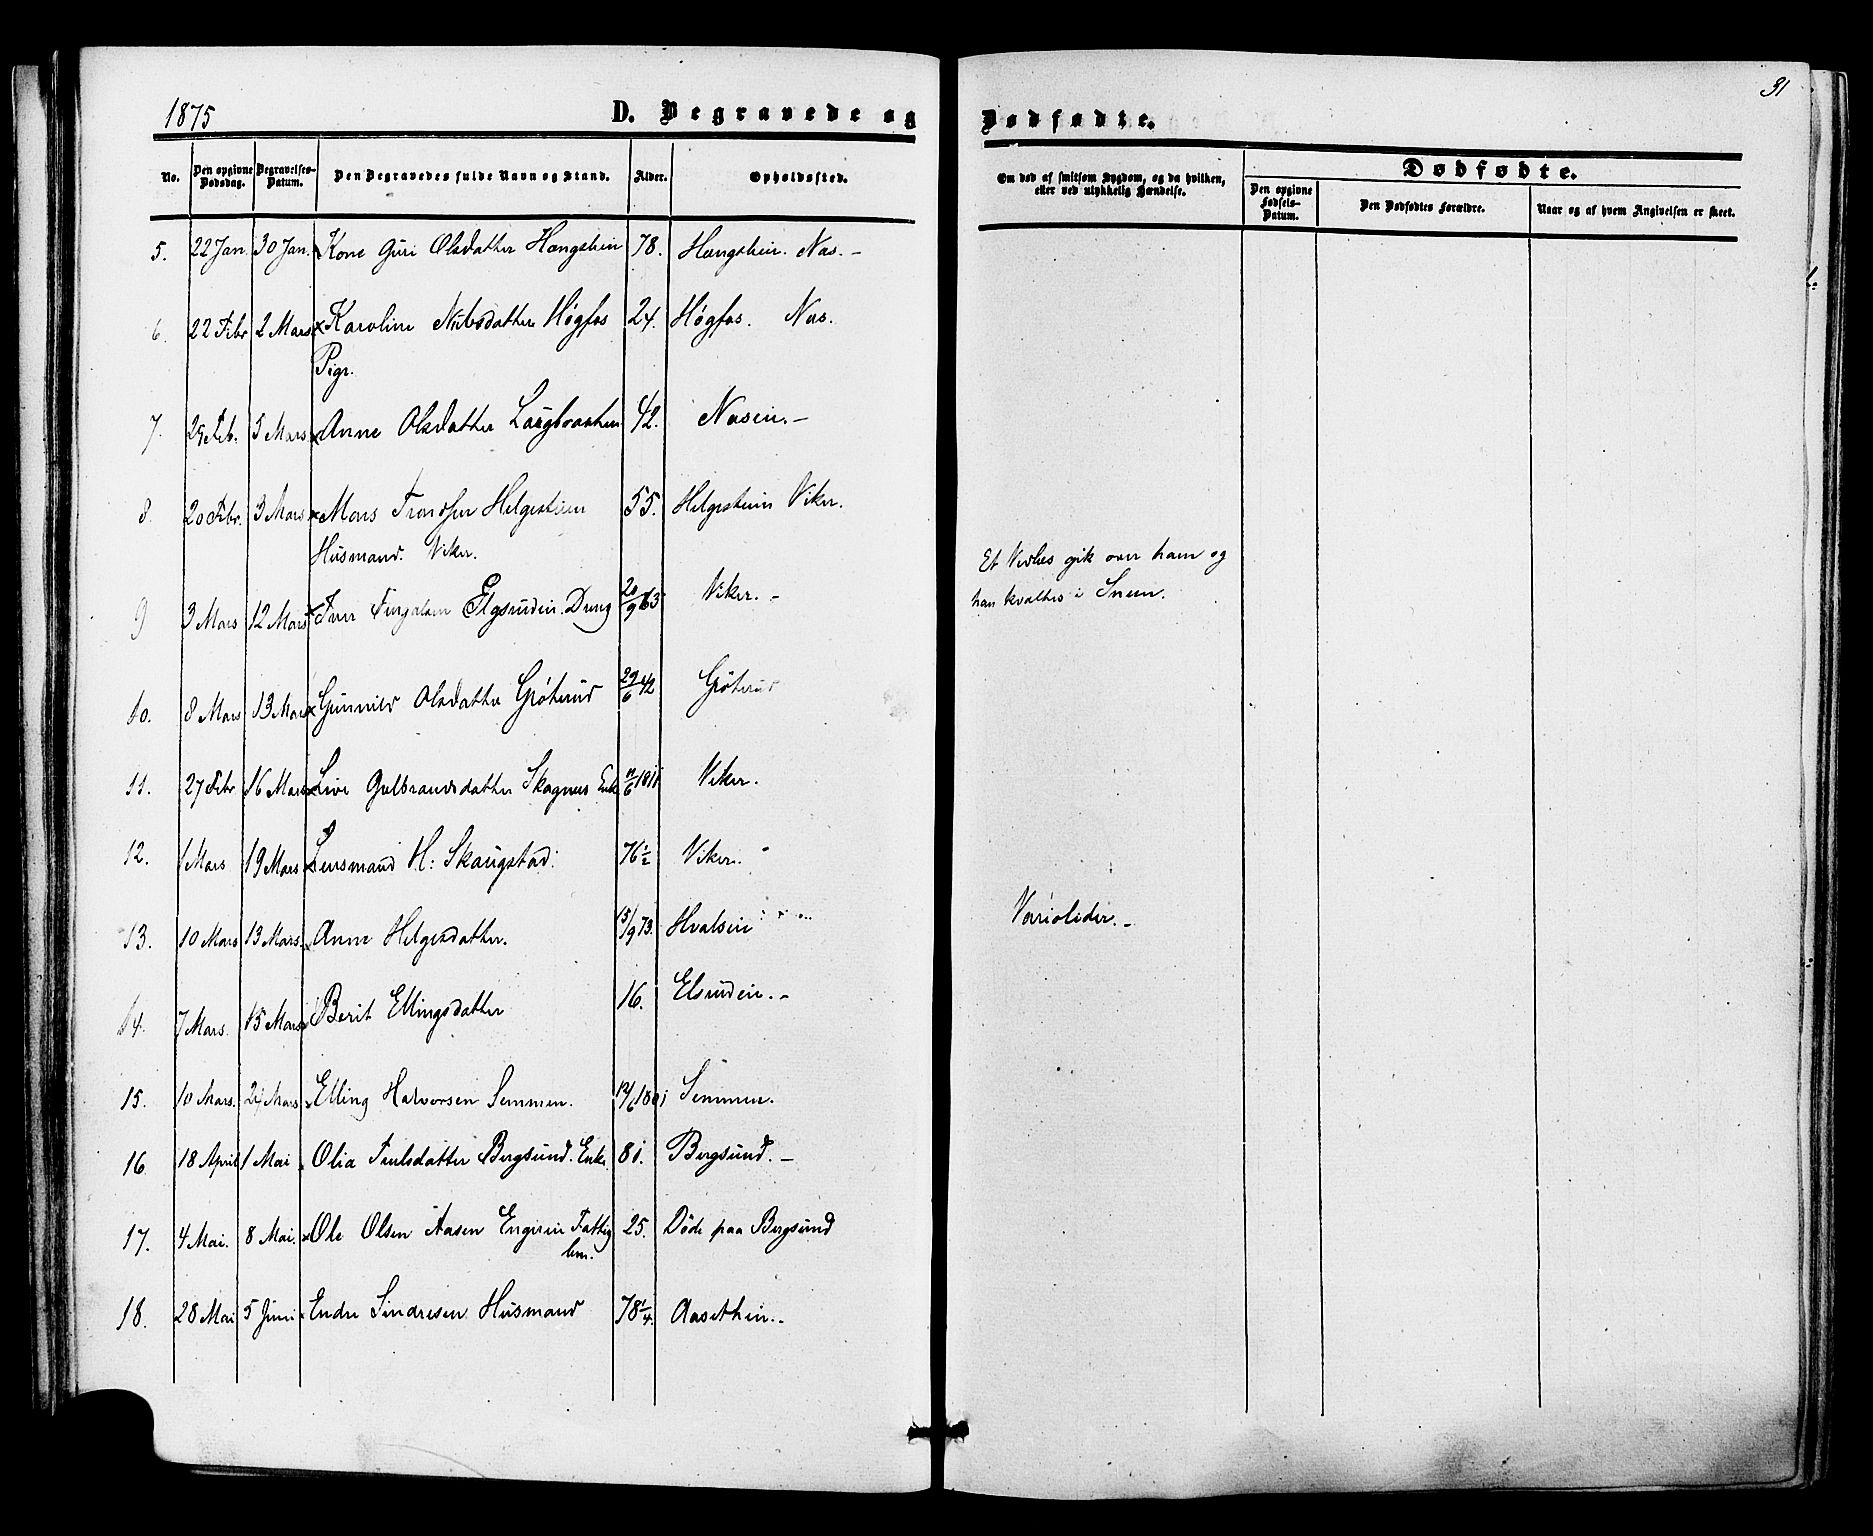 1875 D. Begravede og Dødfødte. 31
No. Den opgivne Dødsdag. Begravelses-Datum. Den Begravedes fulde Navn og Stand. Alder. Opholdssted. Om død af smitsom Sygdom, og da hvilken, eller ved ulykkelig Hændelse. Dødfødte.
Den opgivne Fødsels-Datum. Den Dødfødtes Forældre. Naar og af hvem Angivelsen er skeet.
5. 22 Jan. 30 Jan. Kone Guri Olsdatter 78. Nas. -
6. 22 Febr 2 Mars x Karoline Nilsdatter Høgfos 24. Høgfos. Nas.
Pige.
7. Feb. 5 Mars x Anne Olsdatter 42. Nasen. -
8. 20 Febr. 3 Mars x Mons Trondsen Helgesteien 55. Helgesteien Viker.
Husmand. Viker.
9 3 Mars 12 Mars x Iver Elgsruden. Dreng 20/9 63 Viker. - Et Vedlæs gik over ham og
han kvaltes i Sneen.
10. 8 Mars 13 Mars x Gunnild Olsdatter Gröterud 29/6 42 Gröterud
11. 27 Febr 16 Mars x Live Gulbrandsdatter Skagnæs Enke 11/6 1811 Viker.
12. 1 Mars 19 Mars x Lensmand H: Skaugstad. 76 1/2 Viker.
13. 10 Mars 13 Mars. x Anne Helgesdatter. 15/9 73. Hvalsen Varioloider. -
14. 7 Mars. 15 Mars x Berit Ellingsdatter 16. Elsruden. -
15. 10 Mars. Mars x Elling Halvorsen Semmen. 12/6 1801 Semmen.
16 18 April 1 Mai x Olia Bergsund. Enke. 81. Bergsund. -
17. 4 Mai. 8 Mai. x Ole Olsen Aasen Fattig 25. Döde paa Bergsund
lem.
18. 28 Mai 5 Juni x Endre Sindresen Husmand 78 1/4. Aasethen. -